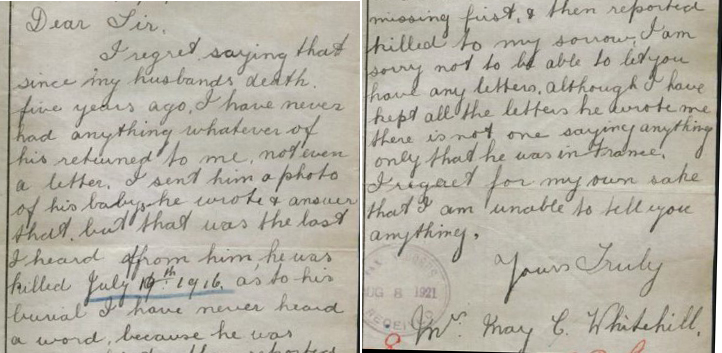 Dear Sir.
I regret saying that
since my husbands death.
five years ago, I have never
had anything whatever of
his returned to me, not even
a letter. I sent him a photo
of his baby, he wrote & answer
that, but that was the last
I heard from him, he was
killed July 19th 1916. as to his
burial I have never heard
a word, because he was
reported
missing first, & then reported
killed to my sorrow, I am
sorry not to be able to let you
have any letters, although I have
kept all the letters he wrote me
there is not one saying anything
only that he was in France.
I regret for my own sake
that I am unable to tell you
anything.
Yours Truly
Mrs May C. Whitehill.
AUG 8 1921